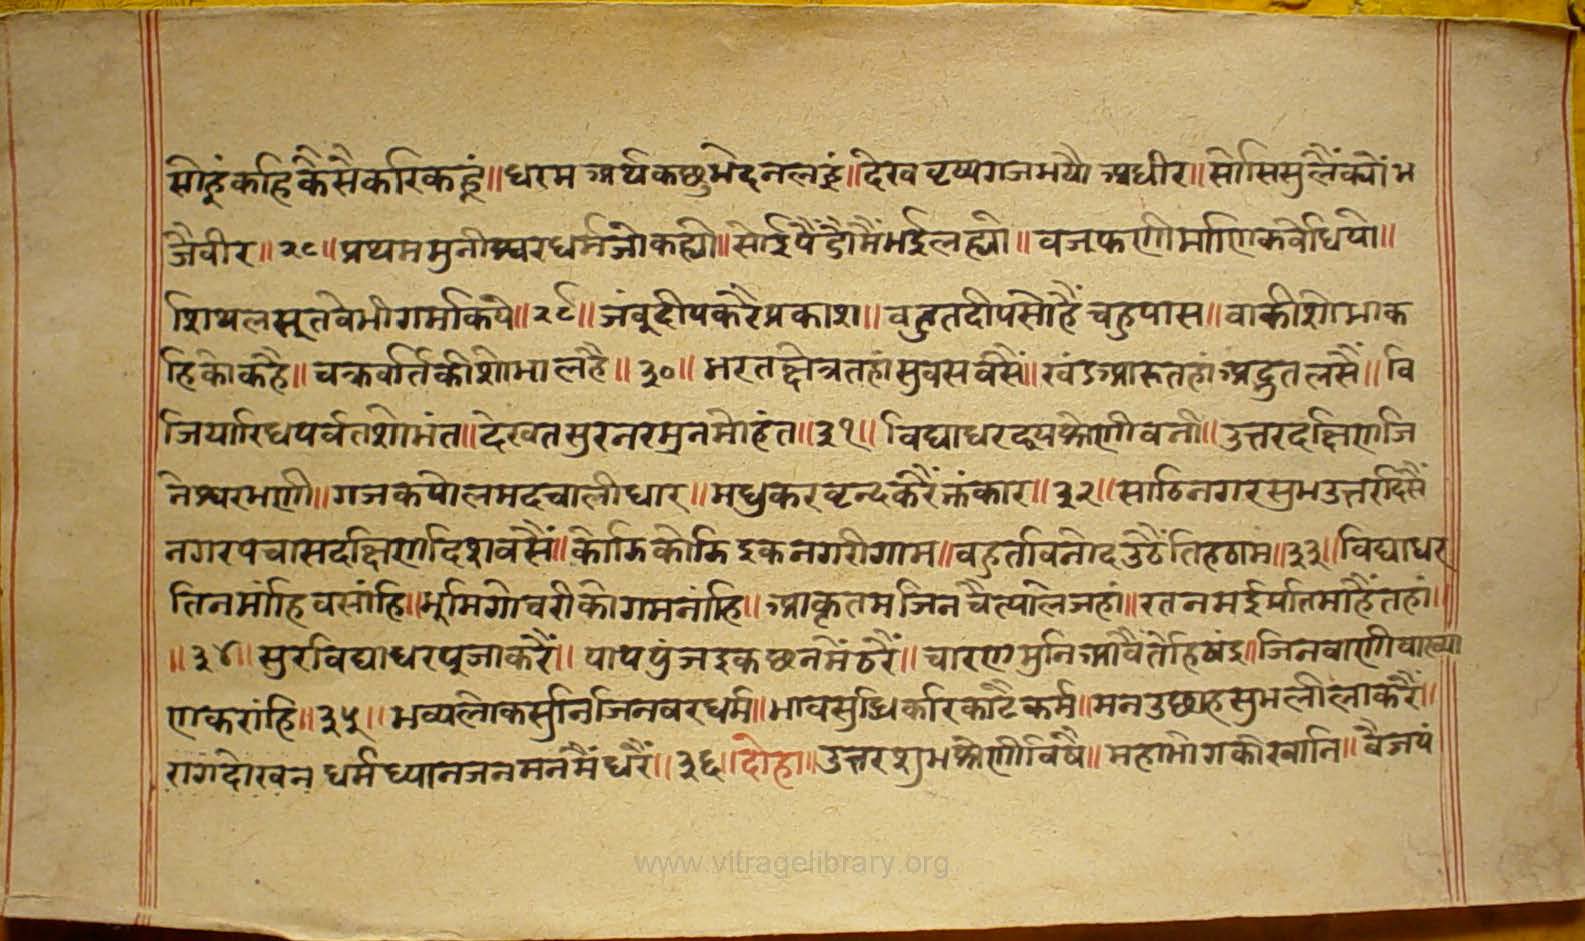 सोहूं कहि कैसै करि कहूं॥ धरम अर्थ कछु भेद न लहूं॥ देख वृष्प गज भयौ अधीर॥ सो सिसु लैं क्यों भ
जै वीर॥२८॥ प्रथम मुनीश्वर धर्म जो कह्यौ॥ सोई पैंडौ मैं भई लह्यो॥ वज्र फणी माणिक वेधियो॥
शिथल सूत वेभी गर्भकिये॥२९॥ जंबुदीप करै प्रकाश॥ वहुत दीप सोहैं चहु पास॥ वाकी शोभा क
हि को कहै॥ चक्रवर्ति की शोभा लहै॥३०॥ भरत क्षेत्र तहां सुवस वसैं॥ खंड आरूतहां अद्भुत लसैं॥ वि
जियारिध पर्वत शोभंत॥ देखत सुर नर मुन मोहंत॥३१॥ विद्याधर द्वय श्रेणी वनी॥ उत्तर दक्षिण जि
नेश्वर भाणी॥ गज कपोल मद चाली धार॥ मधुकर वृन्द करैं झंकार॥३२॥ साठि नगर सुभ उत्तर दिसैं
नगर पचास दक्षिण दिश वसैं॥ कोडि कोडि इक नगरी गाम॥ वहुत विनोद उठैं तिह ठाम॥३३॥ विद्याधर
तिन मांहि वसांहि॥ भूमि गोचरी को गम नांहि॥ आकृतम जिन चैत्याले जहां॥ रतनमई प्रतिमा हैं तहां॥
॥३४॥ सुर विद्याधर पूजा करैं॥ पाप पुंज इक छन मैं ठरैं॥ चारण मुनि आवैं तेहि षंड॥ जिनवाणी वाख्या
ण करांहि॥३५॥ भव्य लोक सुनि जिनवर धर्म॥ भाव सुध्रि करि काटै कर्म॥ मन उछाह सुभ लीला करैं॥
राग दोख न धर्म ध्यान जन मन मैं धरैं॥३६॥ दोहा॥ उत्तर शुभ श्रेणी विषै॥ महा भोग की खानि॥ वैजयं
www.vitragelibrary.org